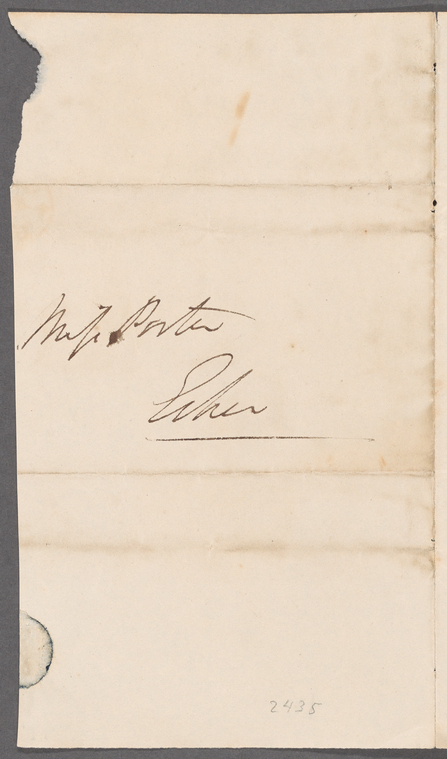 Miss Porter
Esher
2435